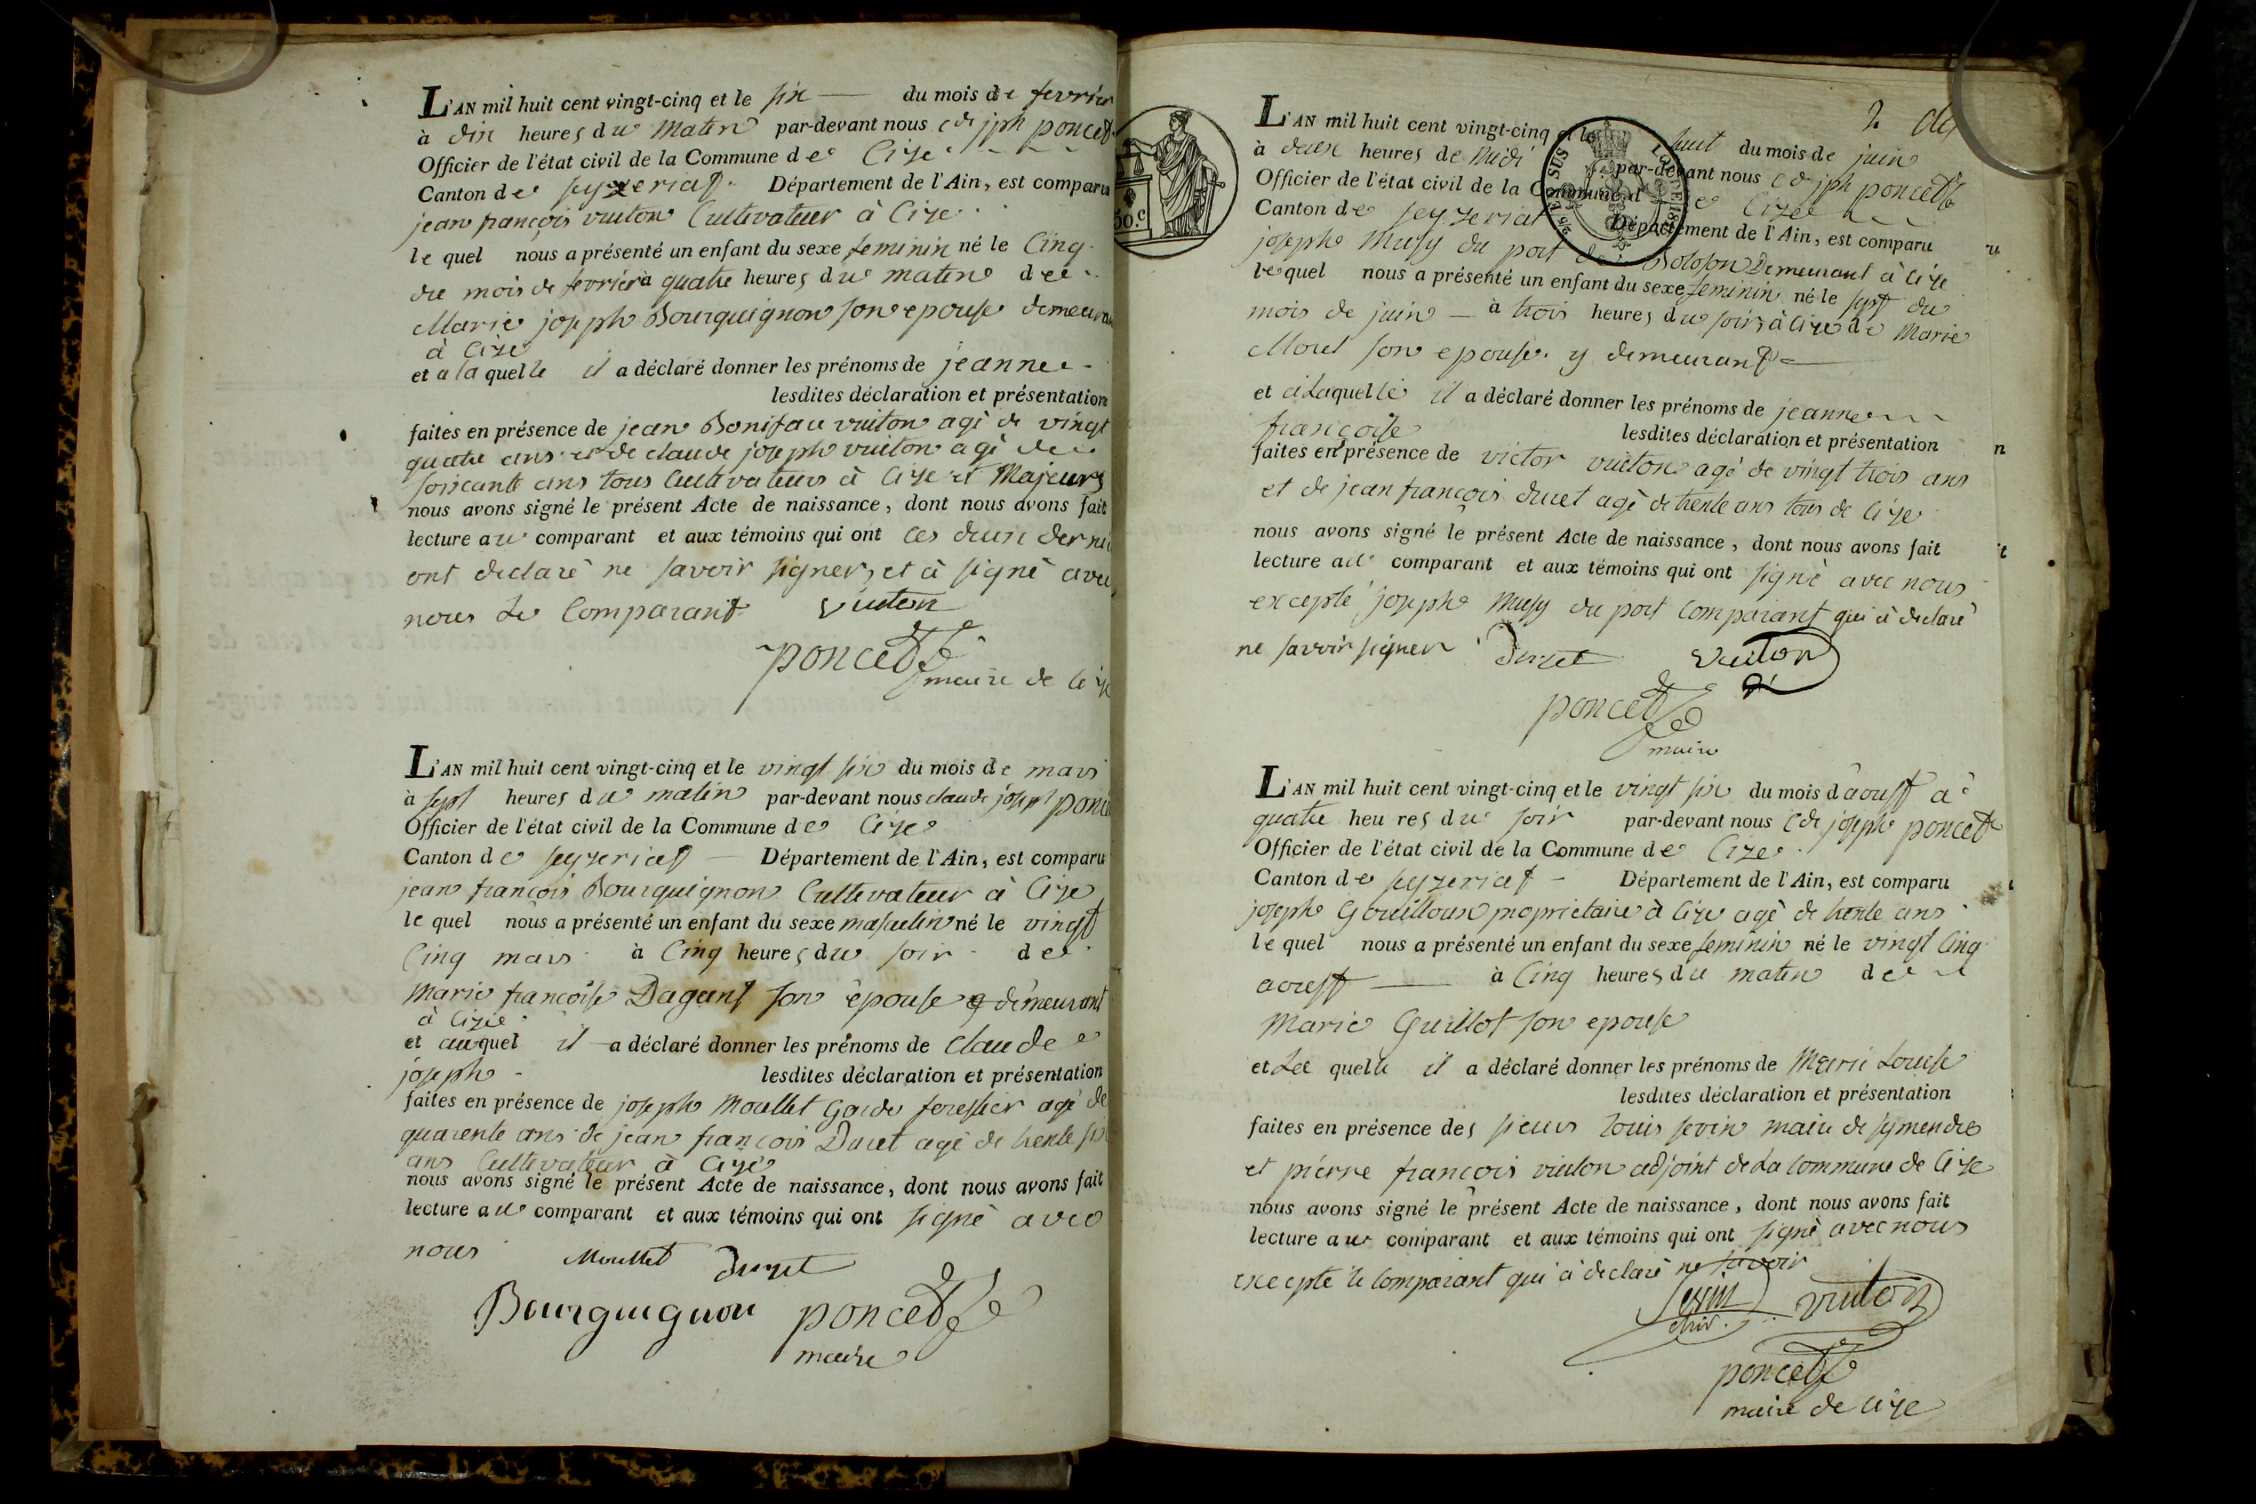 L'AN mil huit cent vingt-cinq et le six du mois de fevrier
à dix heures du matin par-devant nous cde jph poncet
Officier de l'état civil de la Commune de Cize
Canton de seyzeriat Département de l'Ain, est comparu
jean françois vuiton Cultivateur à Cize
lequel nous a présenté un enfant du sexe feminin né le Cinq
du mois de fevrier à quatre heures du matin de
Marie joseph Bourguignon son epouse demeurant
à Cize
et a laquelle il a déclaré donner les prénoms de jeanne
lesdites déclaration et présentation
faites en présence de jean Boniface vuiton agé de vingt
quatre ans et de claude joseph vuiton agé de
soixante ans tous Cultivateurs à Cize et Majeurs
nous avons signé le présent Acte de naissance, dont nous avons fait
lecture au comparant et aux témoins qui ont ces deux
ont declaré ne savoir signer, et à signé avec
nous Le Comparant vuiton
poncet
maire de Cize
L'AN mil huit cent vingt-cinq et le vingt six du mois de mars
à sept heures du matin par-devant nous claude joseph poncet
Officier de l'état civil de la Commune de Cize
Canton de seyzeriat Département de l'Ain, est comparu
jean françois Bourguignon Cultivateur à Cize
lequel nous a présenté un enfant du sexe masculin né le vingt
Cinq mars à Cinq heures du soir de
Marie françoise Dagant son épouse demeurant
à Cize
et auquel il a déclaré donner les prénoms de claude
joseph lesdites déclaration et présentation
faites en présence de joseph Moullet Garde forestier agé de
quarente ans de jean françois Ducret agé de trente six
ans Cultivateur à Cize
nous avons signé le présent Acte de naissance, dont nous avons fait
lecture au comparant et aux témoins qui ont signé avec
nous Moullet
Bourguignon poncet
maire
50.c
2
L'AN mil huit cent vingt-cinq et le huit du mois de juin
à deux heures de Midi par-devant nous cde jph poncet
Officier de l'état civil de la Commune de Cize
Canton de seyzeriat Département de l'Ain, est comparu
joseph Musy du port de Bolozon Demeurant à Cize
lequel nous a présenté un enfant du sexe feminin né le sept du
mois de juin à trois heures du soir à Cize de Marie
Morel son epouse y demeurant
et à Laquelle il a déclaré donner les prénoms de jeanne
françoise lesdites déclaration et présentation
faites en présence de victor vuiton agé de vingt trois ans
et de jean françois ducret agé de trente ans tous de Cize
nous avons signé le présent Acte de naissance, dont nous avons fait
lecture au comparant et aux témoins qui ont signé avec nous
excepté joseph Musy du port comparant qui à declaré
ne savoir signer vuiton
poncet
maire
L'AN mil huit cent vingt-cinq et le vingt six du mois d'aoust à
quatre heures du soir par-devant nous cde joseph poncet
Officier de l'état civil de la Commune de Cize
Canton de seyzeriat Département de l'Ain, est comparu
joseph Gouilloux proprietaire à Cize agé de trente ans
lequel nous a présenté un enfant du sexe feminin né le vingt Cinq
aoust à Cinq heures du matin de
Marie Guillot son epouse
et La quelle il a déclaré donner les prénoms de Marie Louise
lesdites déclaration et présentation
faites en présence des sieurs Louis sevin maire de symandre
et pierre françois vuiton adjoint de La Commune de Cize
nous avons signé le présent Acte de naissance, dont nous avons fait
lecture au comparant et aux témoins qui ont signé avec nous
excepté le Comparant qui à declaré ne savoir
sevin vuiton
poncet
maire de Cize